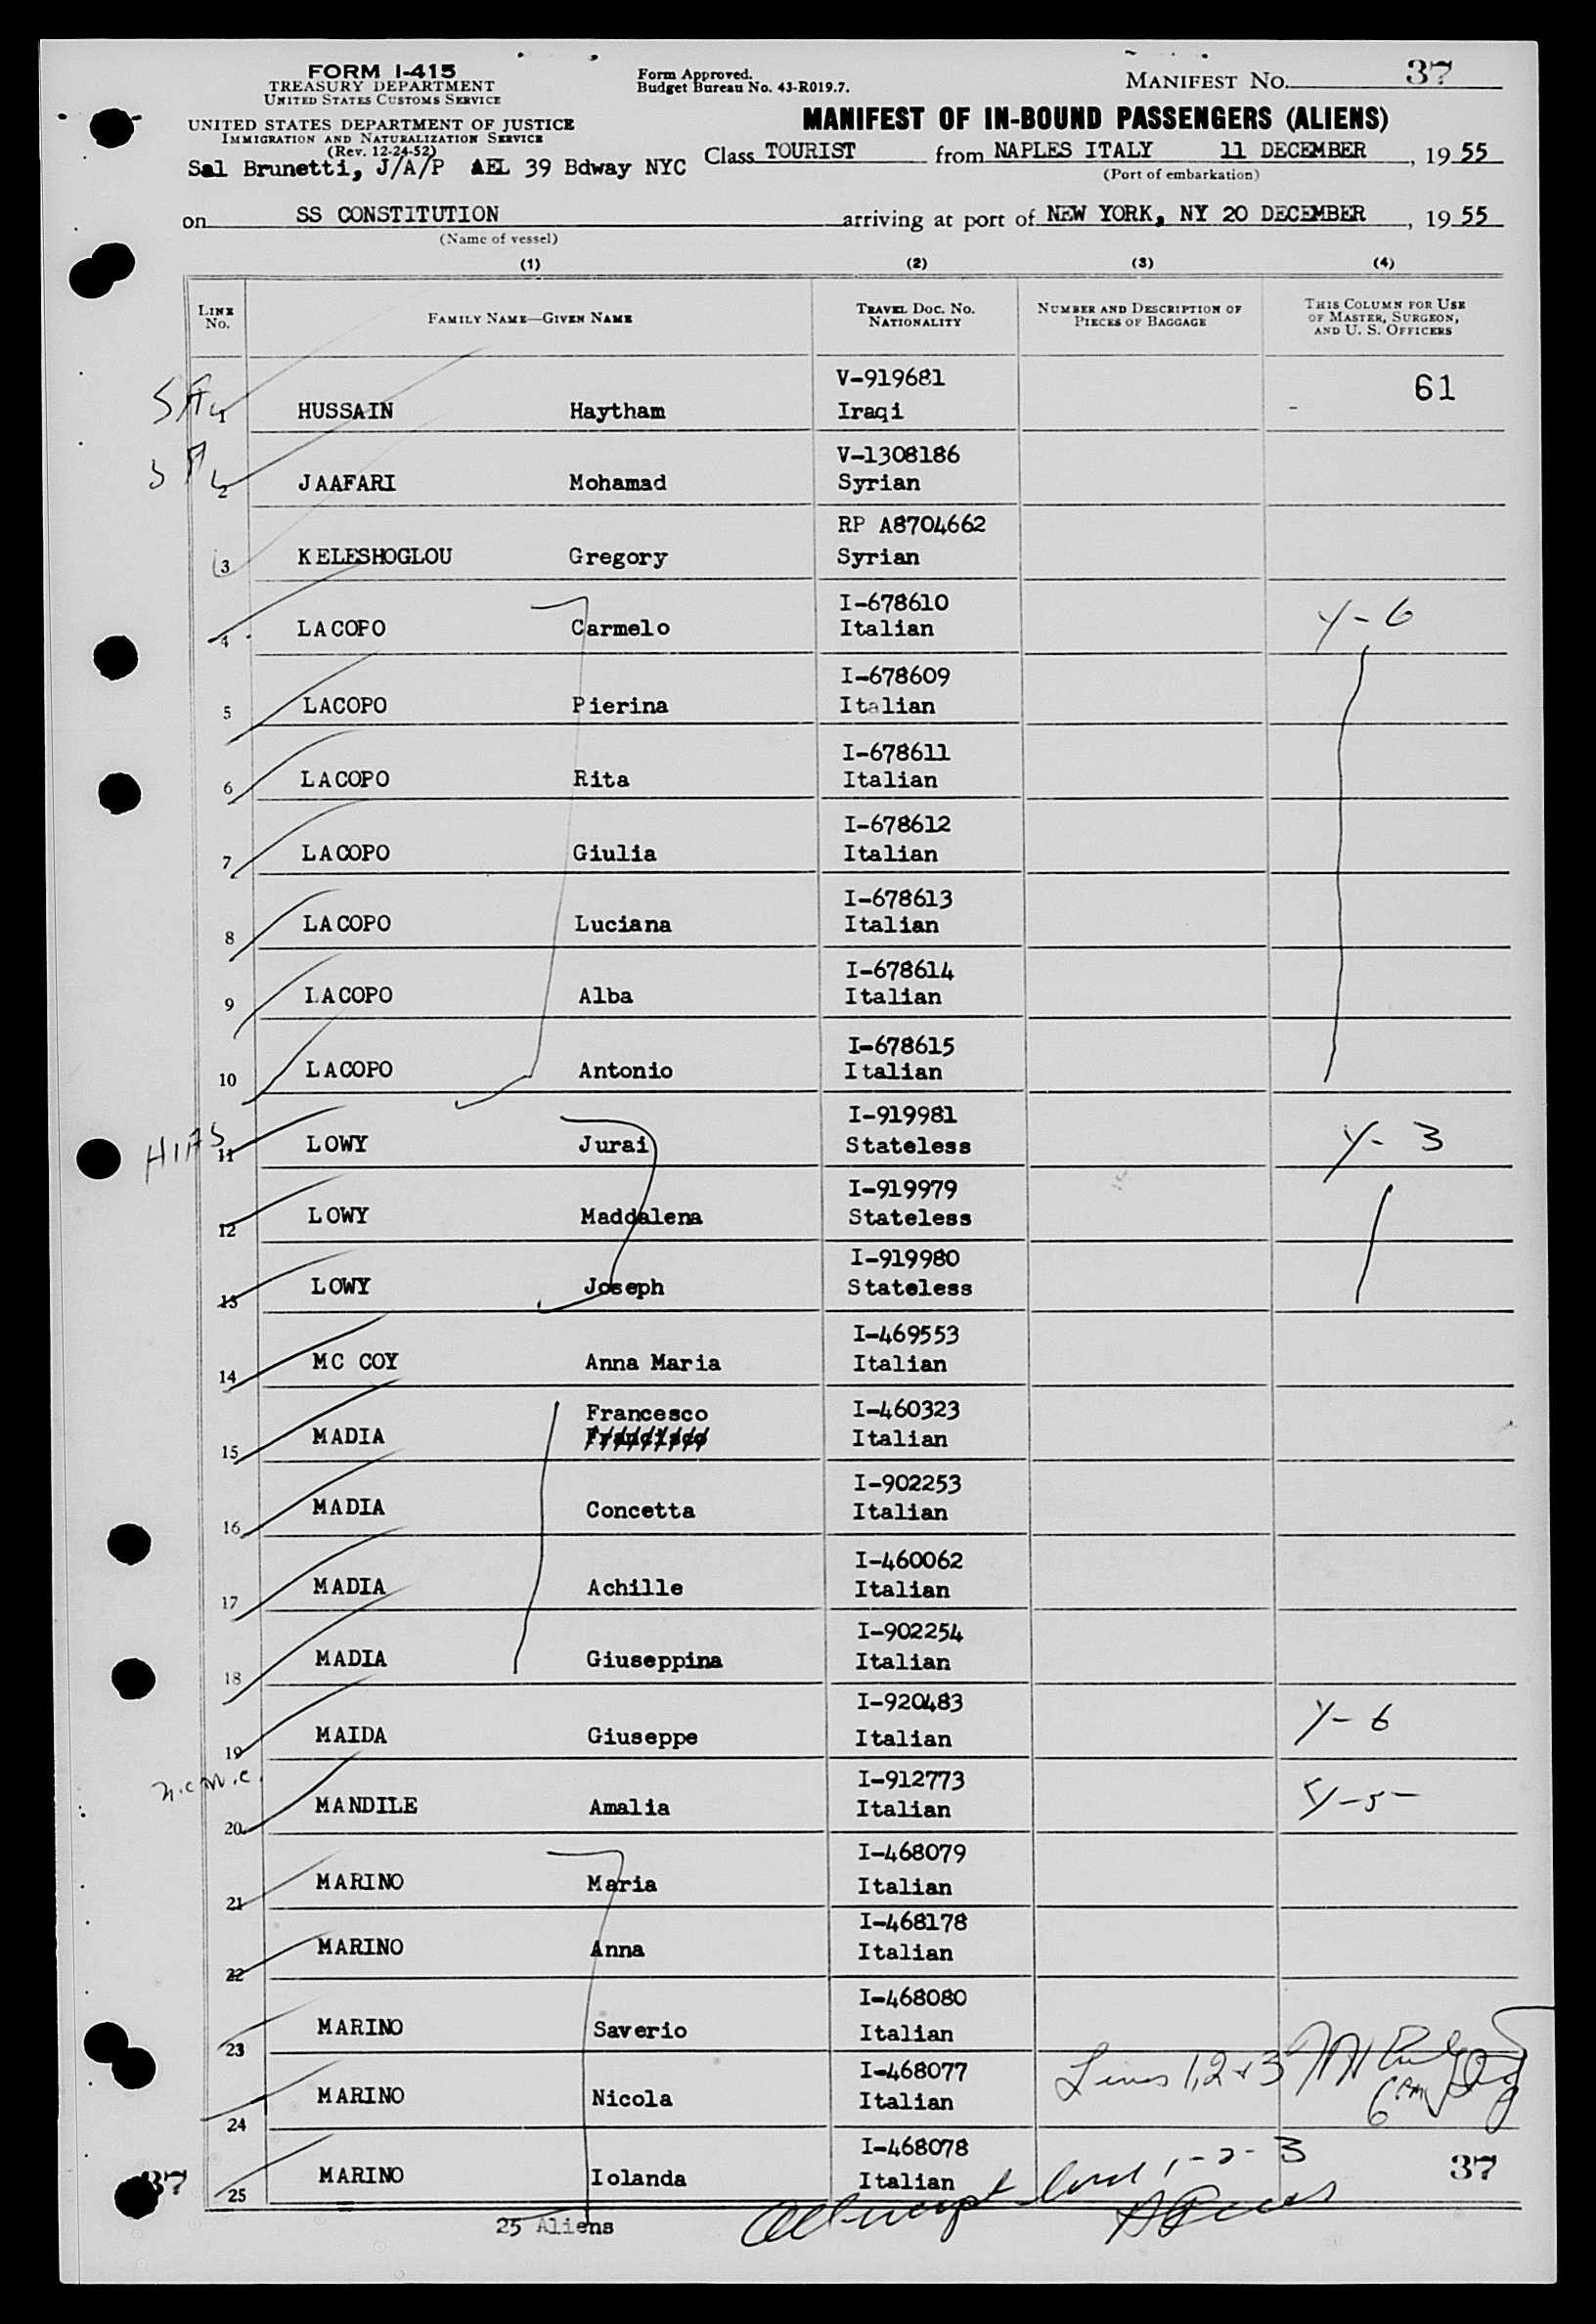 FORM I-415
TREASURY DEPARTMENT
UNITED STATES CUSTOMS SERVICE
UNITED STATES DEPARTMENT OF JUSTICE
IMMIGRATION AND NATURALIZATION SERVICE
(Rev. 12-24-52)
Sal Brunetti, J/A/P AEL 39 Bdway NYC
Form Approved.
Budget Bureau No. 43-R019.7.
MANIFEST NO. 37
MANIFEST OF IN-BOUND PASSENGERS (ALIENS)
Class TOURIST from NAPLES ITALY 11 DECEMBER, 1955
(Port of embarkation)
on SS CONSTITUTION arriving at port of NEW YORK, NY 20 DECEMBER, 1955
(Name of vessel)
(1) (2) (3) (4)
LINE No. FAMILY NAME—GIVEN NAME TRAVEL DOC. NO. NATIONALITY NUMBER AND DESCRIPTION OF PIECES OF BAGGAGE THIS COLUMN FOR USE OF MASTER, SURGEON, AND U. S. OFFICERS
V-919681 61
1 HUSSAIN Haytham Iraqi
V-1308186
2 JAAFARI Mohamad Syrian
RP A8704662
3 KELESHOGLOU Gregory Syrian
I-678610 Y-6
4 LACOPO Carmelo Italian
I-678609
5 LACOPO Pierina Italian
I-678611
6 LACOPO Rita Italian
I-678612
7 LACOPO Giulia Italian
I-678613
8 LACOPO Luciana Italian
I-678614
9 LACOPO Alba Italian
I-678615
10 LACOPO Antonio Italian
I-919981
HIAS 11 LOWY Jurai Stateless Y-3
I-919979
12 LOWY Maddalena Stateless
I-919980
13 LOWY Joseph Stateless
I-469553
14 MC COY Anna Maria Italian
Francesco I-460323
15 MADIA Francisco Italian
I-902253
16 MADIA Concetta Italian
I-460062
17 MADIA Achille Italian
I-902254
18 MADIA Giuseppina Italian
I-920483
19 MAIDA Giuseppe Italian Y-6
n.c.w.c. I-912773
20 MANDILE Amalia Italian Y-5
I-468079
21 MARINO Maria Italian
I-468178
22 MARINO Anna Italian
I-468080
23 MARINO Saverio Italian
Lines 1,2+3
I-468077
24 MARINO Nicola Italian
I-468078
25 MARINO Iolanda Italian
37 37
25 Aliens
All except lines 1-2-3